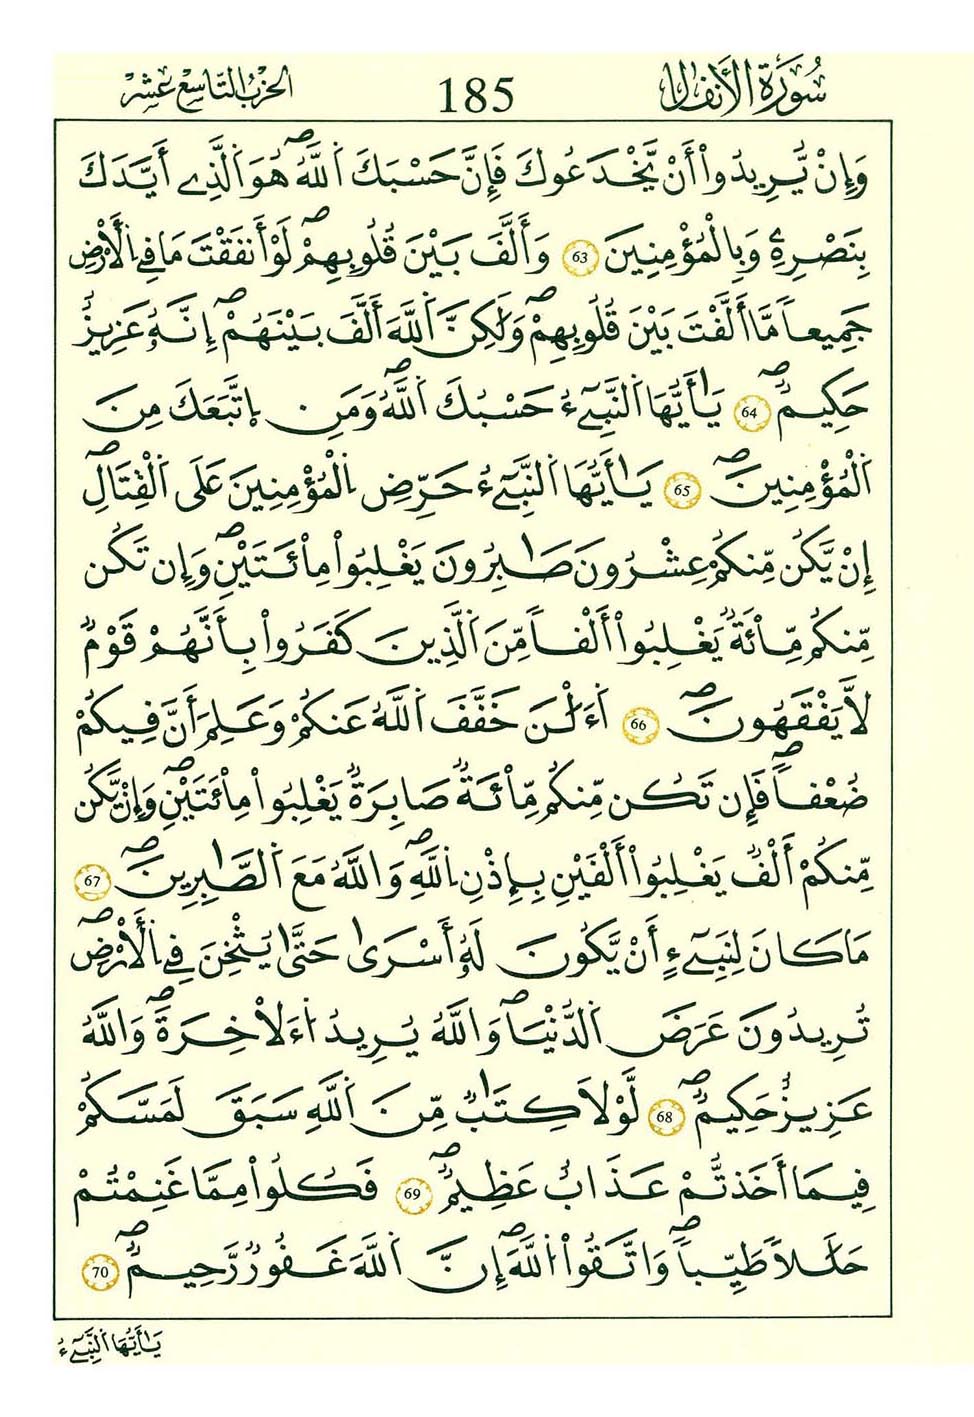 سُورَةُ الْأَنفَالِ 185 الحزب التاسع عشر
وَإِنْ يُّرِيدُواْ أَنْ يَّخْدَعُوكَ فَإِنَّ حَسْبَكَ اَللَّهُۖ هُوَ اَلَّذِے أَيَّدَكَ
بِنَصْرِهِۦ وَبِالْمُؤْمِنِينَ 63 وَأَلَّفَ بَيْنَ قُلُوبِهِمْۖ لَوْ أَنفَقْتَ مَا فِے اِلْأَرْضِ
جَمِيعاٗ مَّا أَلَّفْتَ بَيْنَ قُلُوبِهِمْۖ وَلَٰكِنَّ اَللَّهَ أَلَّفَ بَيْنَهُمْۖ إِنَّهُۥ عَزِيزٌ
حَكِيمٌۖ 64 يَٰأَيُّهَا اَلنَّبِےٓءُ حَسْبُكَ اَللَّهُۖ وَمَنِ اِتَّبَعَكَ مِنَ
اَلْمُؤْمِنِينَۖ 65 يَٰأَيُّهَا اَلنَّبِےٓءُ حَرِّضِ اِلْمُؤْمِنِينَ عَلَى اَلْقِتَالِۖ
إِنْ يَّكُن مِّنكُمْ عِشْرُونَ صَٰبِرُونَ يَغْلِبُواْ مِاْئَتَيْنِۖ وَإِن تَكُن
مِّنكُم مِّاْئَةٞ يَغْلِبُواْ أَلْفاٗ مِّنَ اَلَّذِينَ كَفَرُواْ بِأَنَّهُمْ قَوْمٌ
لَّا يَفْقَهُونَۖ 66 اَءَلَٰنَ خَفَّفَ اَللَّهُ عَنكُمْ وَعَلِمَ أَنَّ فِيكُمْ
ضُعْفاٗۖ فَإِن تَكُن مِّنكُم مِّاْئَةٞ صَابِرَةٞ يَغْلِبُواْ مِاْئَتَيْنِۖ وَإِنْ يَّكُن
مِّنكُمْ أَلْفٞ يَغْلِبُواْ أَلْفَيْنِ بِإِذْنِ اِللَّهِۖ وَاللَّهُ مَعَ اَلصَّٰبِرِينَۖ 67
مَا كَانَ لِنَبِےٓءٍ أَنْ يَّكُونَ لَهُۥ أَسْرَىٰ حَتَّىٰ يُثْخِنَ فِے اِلْأَرْضِۖ
تُرِيدُونَ عَرَضَ اَلدُّنْيَاۖ وَاللَّهُ يُرِيدُ اَءَلْأخِرَةَۖ وَاللَّهُ
عَزِيزٌ حَكِيمٌۖ 68 لَّوْلَا كِتَٰبٞ مِّنَ اَللَّهِ سَبَقَ لَمَسَّكُمْ
فِيمَا أَخَذتُّمْ عَذَابٌ عَظِيمٌۖ 69 فَكُلُواْ مِمَّا غَنِمْتُمْ
حَلَٰلاٗ طَيِّباٗۖ وَاتَّقُواْ اَللَّهَۖ إِنَّ اَللَّهَ غَفُورٌ رَّحِيمٌۖ 70
يَٰأَيُّهَا اَلنَّبِےٓءُ